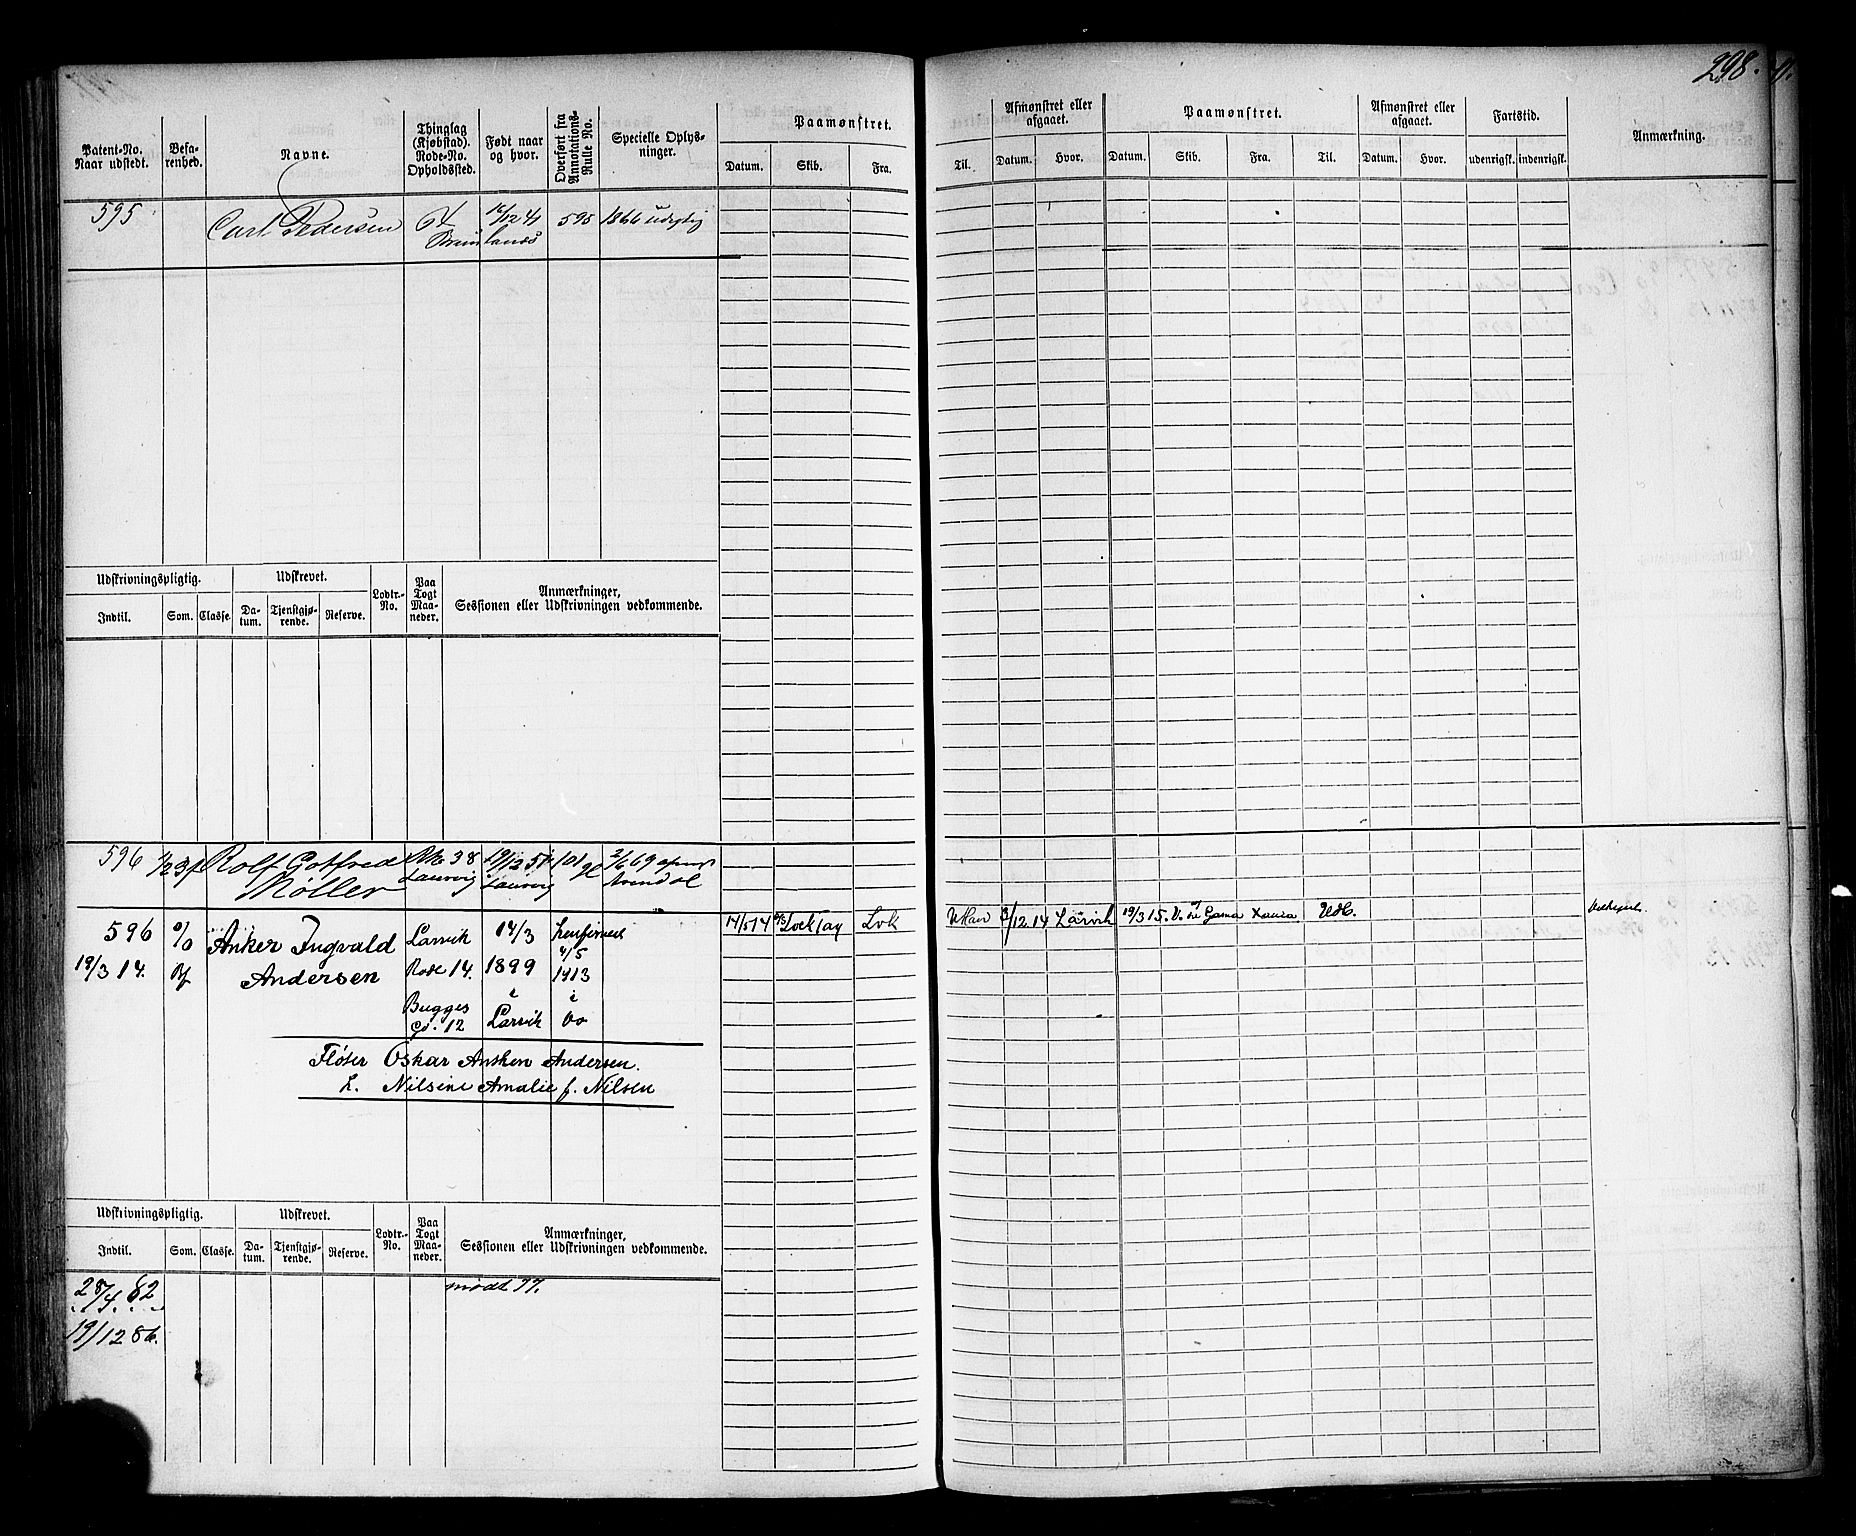 298.
Patent-No. Naar udstedt. Befarenhed. Navne. Thinglag (Kjøbstad). Rode-No. Opholdssted. Født naar og hvor. Overført fra Annotations-Rulle No. Specielle Oplysninger. Paamønstret. Datum. Skib. Fra.
Til. Afmønstret eller afgaaet. Datum. Hvor. Paamønstret. Datum. Skib. Fra. Til. Afmønstret eller afgaaet. Datum. Hvor. Fartstid. udenrigsk. indenrigsk. Anmærkning.
595 Carl Pedersen 16/12 41 595 1866 udygtig
Udskrivningspligtig. Udskrevet. Lodtr.-No. Paa Togt Maaneder. Anmærkninger, Sessionen eller Udskrivningen vedkommende.
Indtil. Som. Classe. Datum. Tjenstgjørende. Reserve.
596 Rolf Gotfred 38 19/12 51 101 2/6 69
Møller Laurvig Laurvig Arendal
596 % Anker Ingvald Larvik 14/3 4/5 17/5 14 Lvk 3/12 14 Larvik 19/3 15. Gama Laura
19/3 14. Andersen Rode 14. 1899 1913
Bugges i i
Gd. 12 Larvik Do
Fløter Oskar Anthon Andersen.
h. Nilsine Amalie f. Nilsen
Udskrivningspligtig. Udskrevet. Lodtr.-No. Paa Togt Maaneder. Anmærkninger, Sessionen eller Udskrivningen vedkommende.
Indtil. Som. Classe. Datum. Tjenstgjørende. Reserve.
28/4 82 mødt 77.
19/12 86.